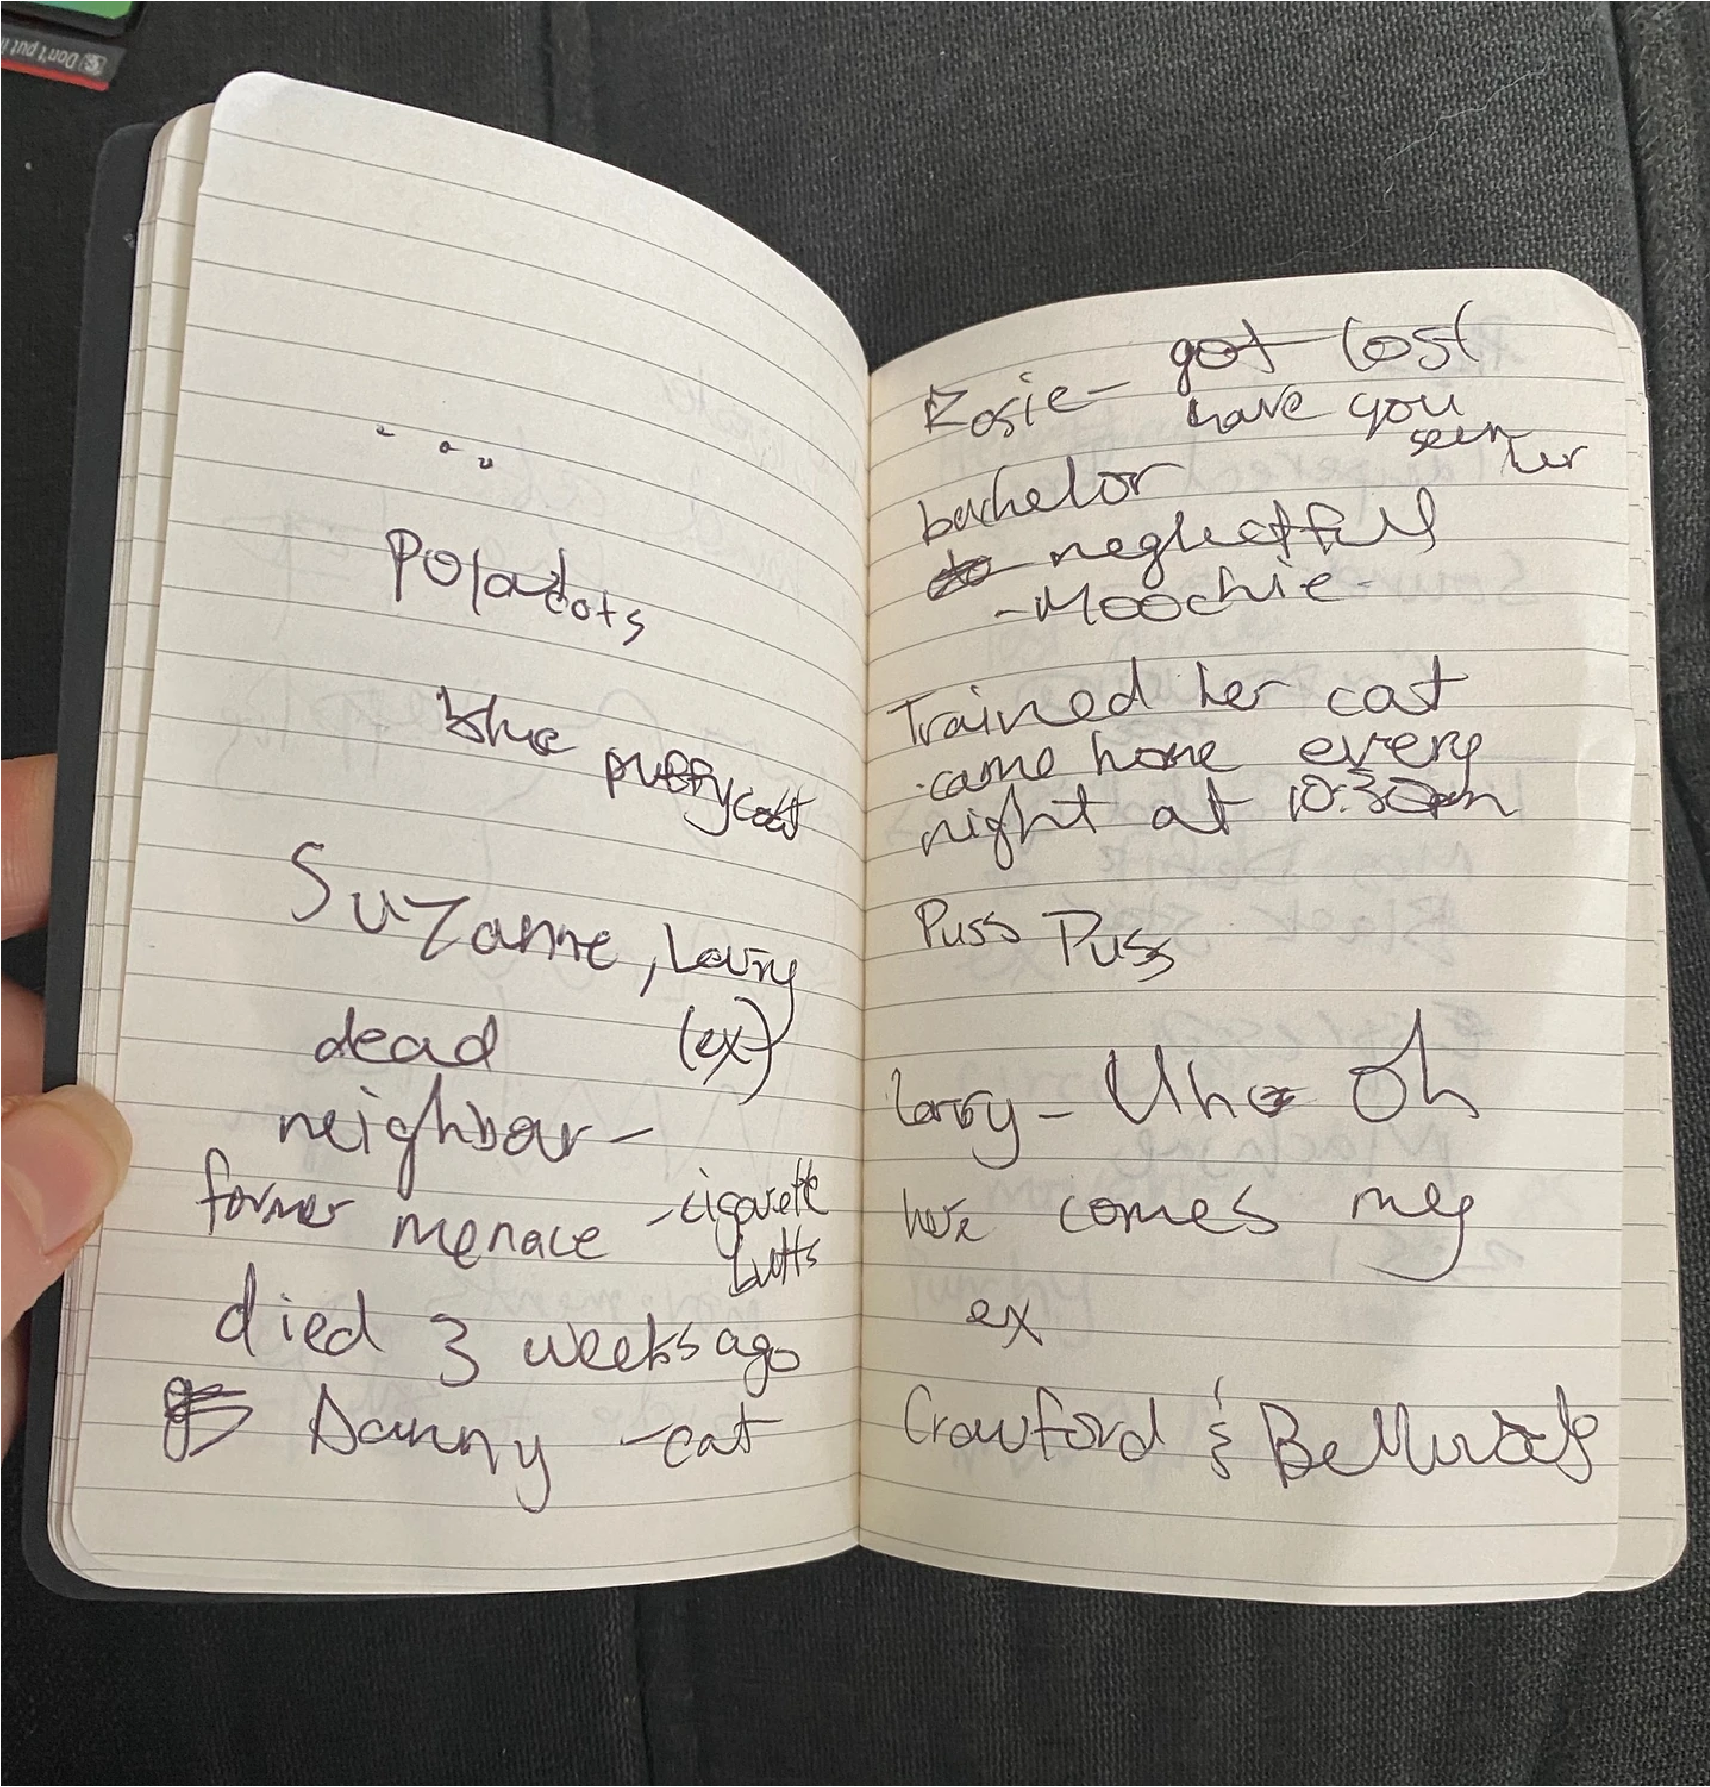 Don't put i
...
Poladots
the puffycat
Suzanne, Larry
dead (ex)
neighbour -
former menace - cigarette
butts
died 3 weeks ago
Danny - cat
Rosie - got lost
have you
seen her
bachelor
neglectful
- Moochie -
Trained her cat
came home every
night at 10:30pm
Puss Puss
Larry - Uh Oh
here comes my
ex
Crawford &